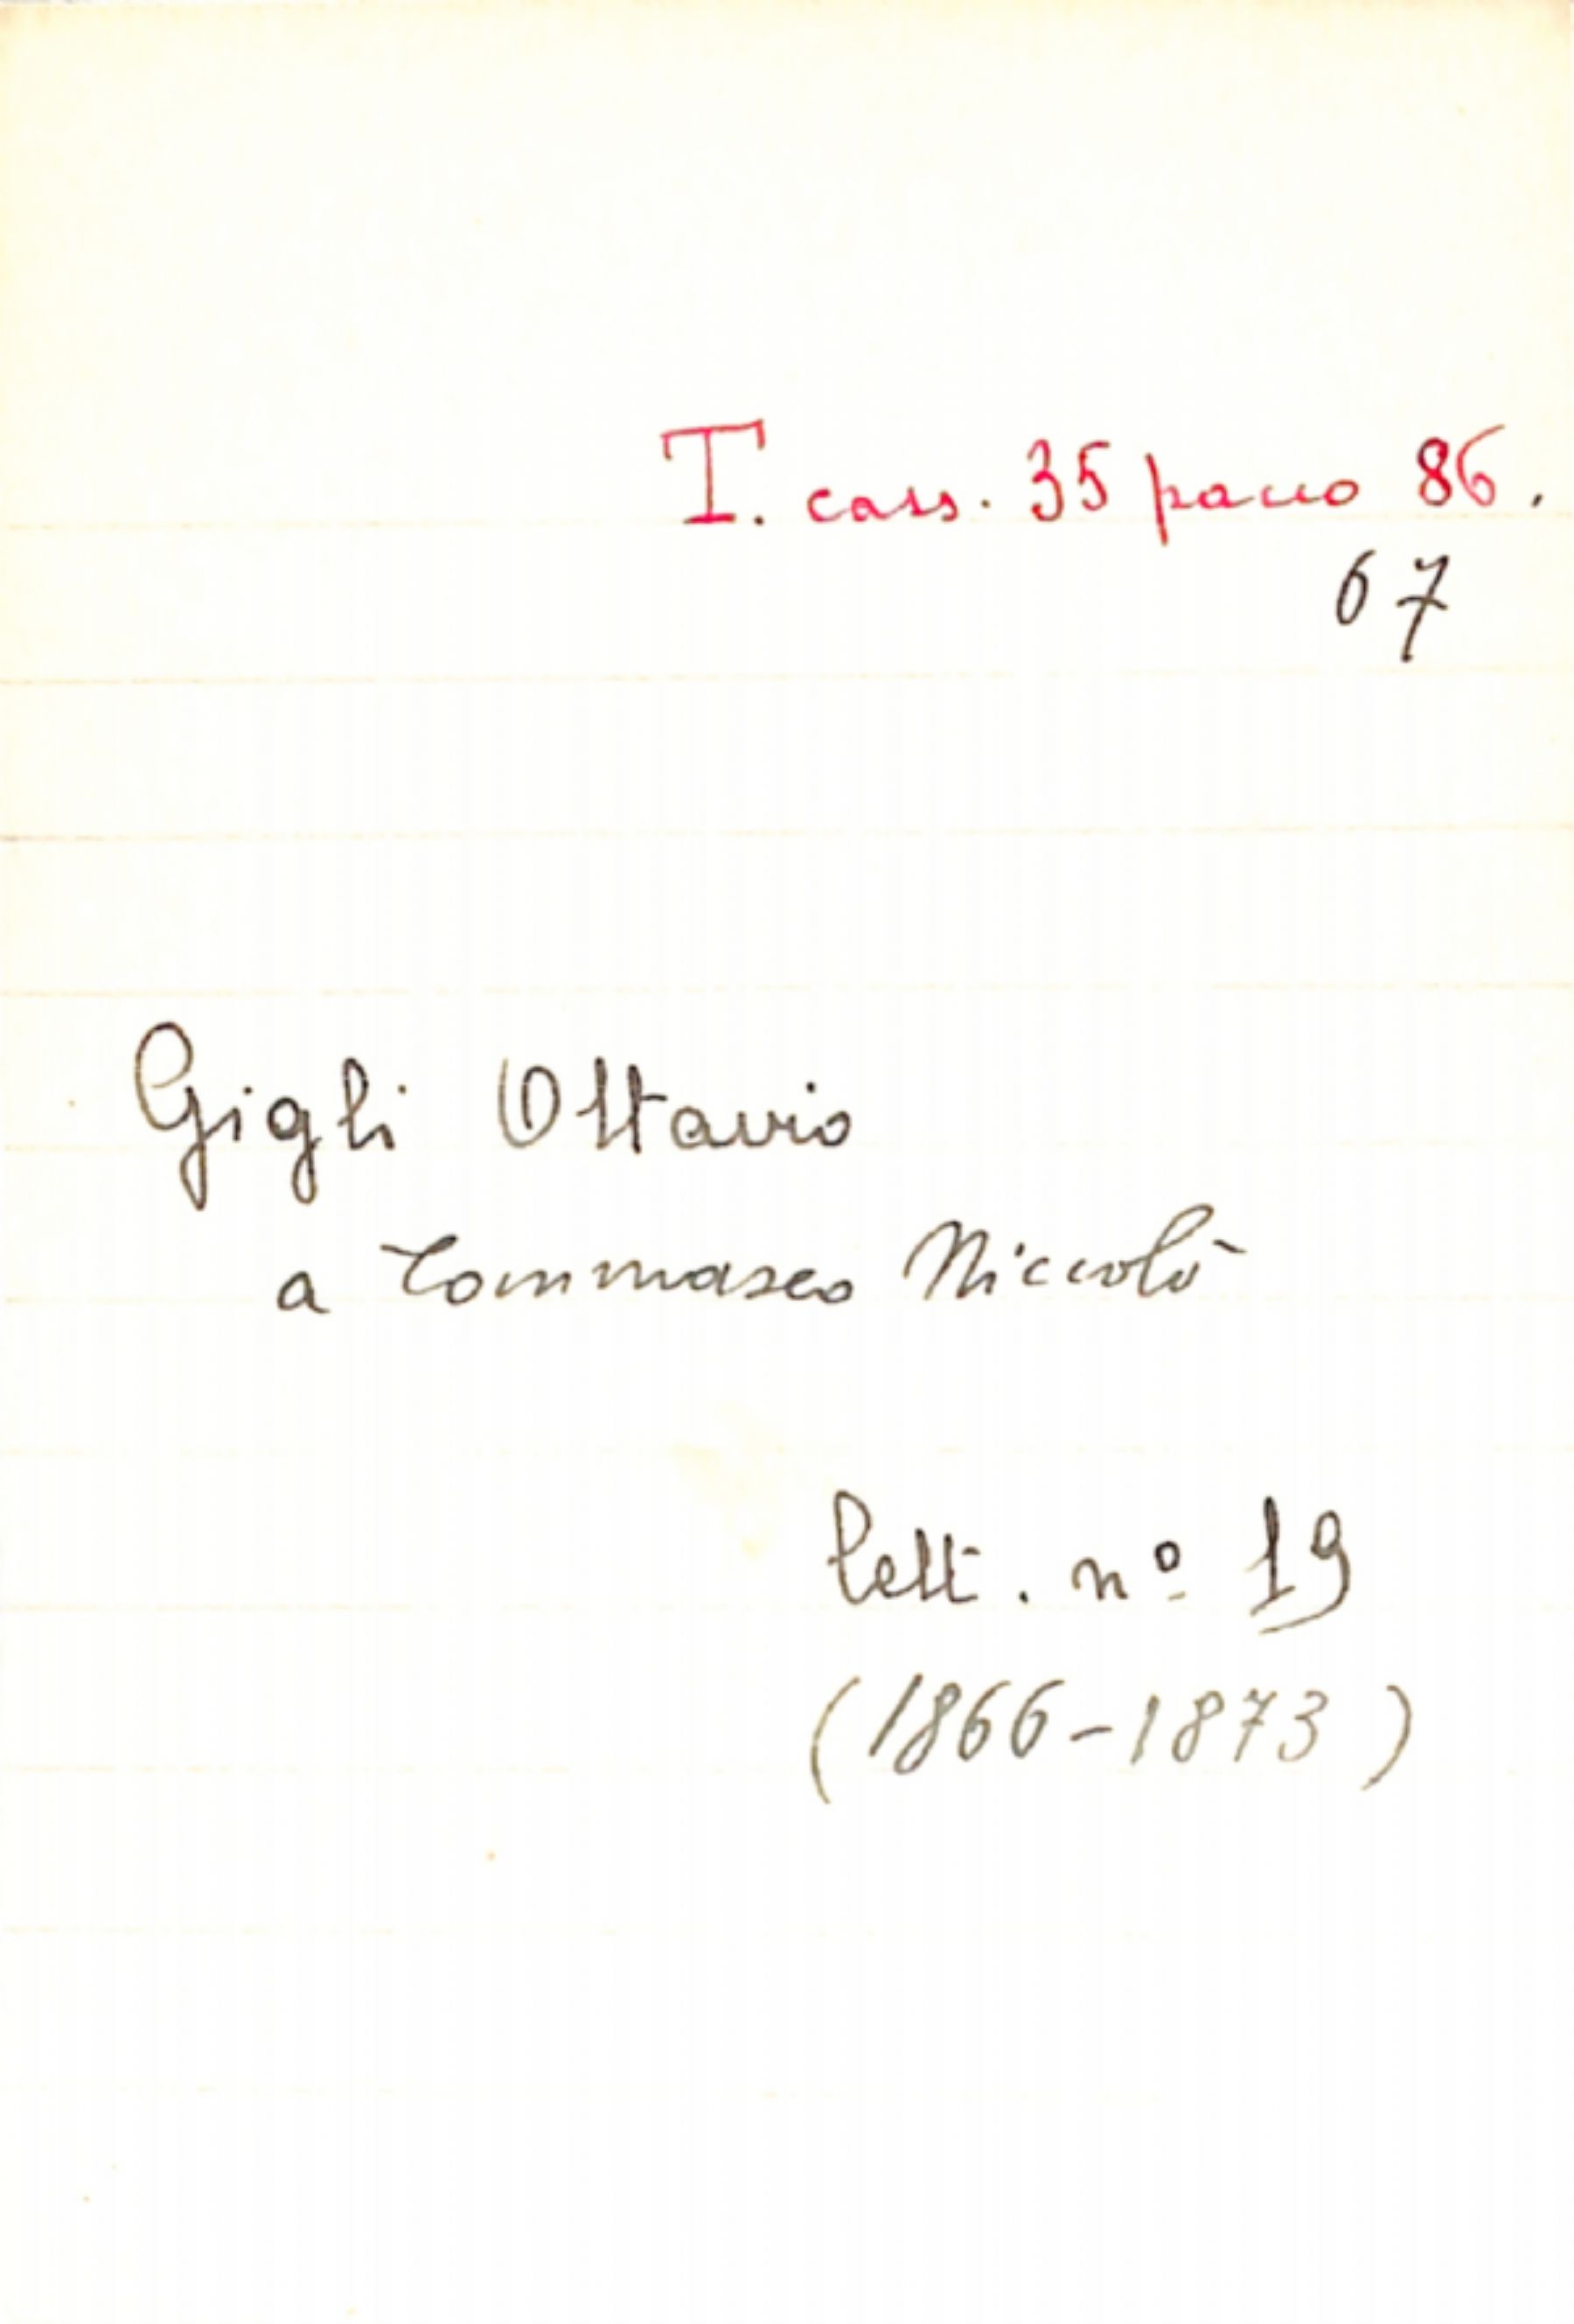 T. cass. 35 pacco 86.
67
Gigli Ottavio
a Tommaseo Niccolò
lett. nº 19
(1866-1873)